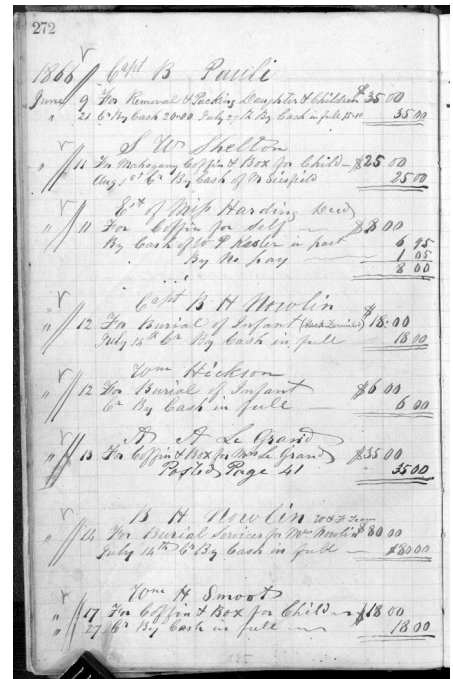 272
1866 Capt B Pauli
June 9 For Removal & Packing Daughter & Children $35 00
" 21 Cr By Cash 20.00 July 27th By Cash in full 15.00 35 00
S W Shelton
" 11 For Mahogany Coffin & Box for Child $25 00
Aug 1st Cr By Cash of 25 00
Est of Miss Harding Decd
" 11 For Coffin for Self $8 00
By Cash of W P Kesler in part 6 95
" By No pay 1 05
8 00
Capt B H Nowlin
" 12 For Burial of Infant (Hack Furnished) $18.00
July 14th Cr By Cash in full 18 00
Wm Hickson
" 12 For Burial of Infant $6 00
Cr By Cash in full 6 00
A A Le Grand
" 13 For Coffin & Box for Mrs Le Grand $35 00
Posted Page 41 35 00
B H Nowlin
" 14 For Burial Services for Mrs Nowlin $80 00
July 14th Cr By Cash in full $80 00
Wm H Smoot
" 17 For Coffin & Box for Child $18 00
" 27 Cr By Cash in full 18 00